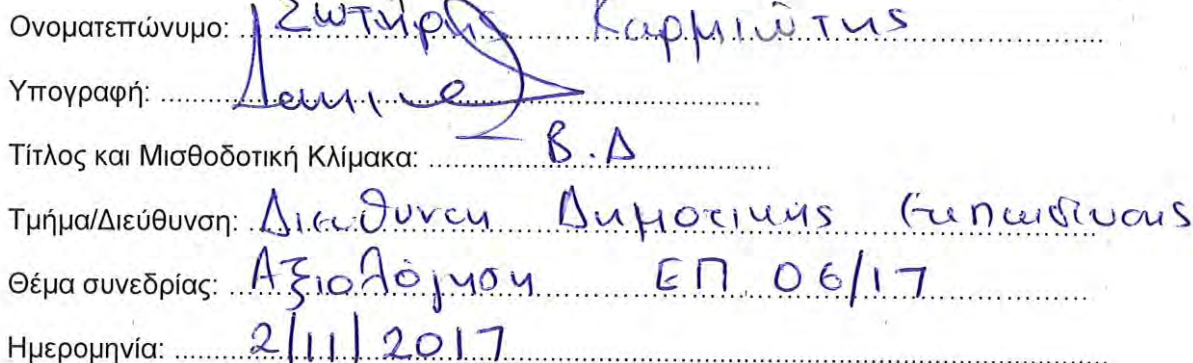 Ονοματεπώνυμο: Σωτήρης Καρμιώτης
Υπογραφή:
Τίτλος και Μισθοδοτική Κλίμακα: Β.Δ
Τμήμα/Διεύθυνση: Διεύθυνση Δημοτικής Εκπαίδευσης
Θέμα συνεδρίας: Αξιολόγηση ΕΠ 06/17
Ημερομηνία: 2/11/2017